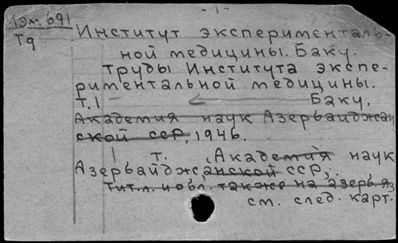 - 1 -
Изм 691
Т9
Институт эксперименталь-
ной медицины. Баку.
Труды Института экспе-
риментальной медицины.
Т.1 Баку.
Академия наук Азербайджан
ской ССР, 1946.
1 т. (Академия наук
Азербайджанской ССР),
Тит.л. и обл. также на азерб. яз
см. след. карт.